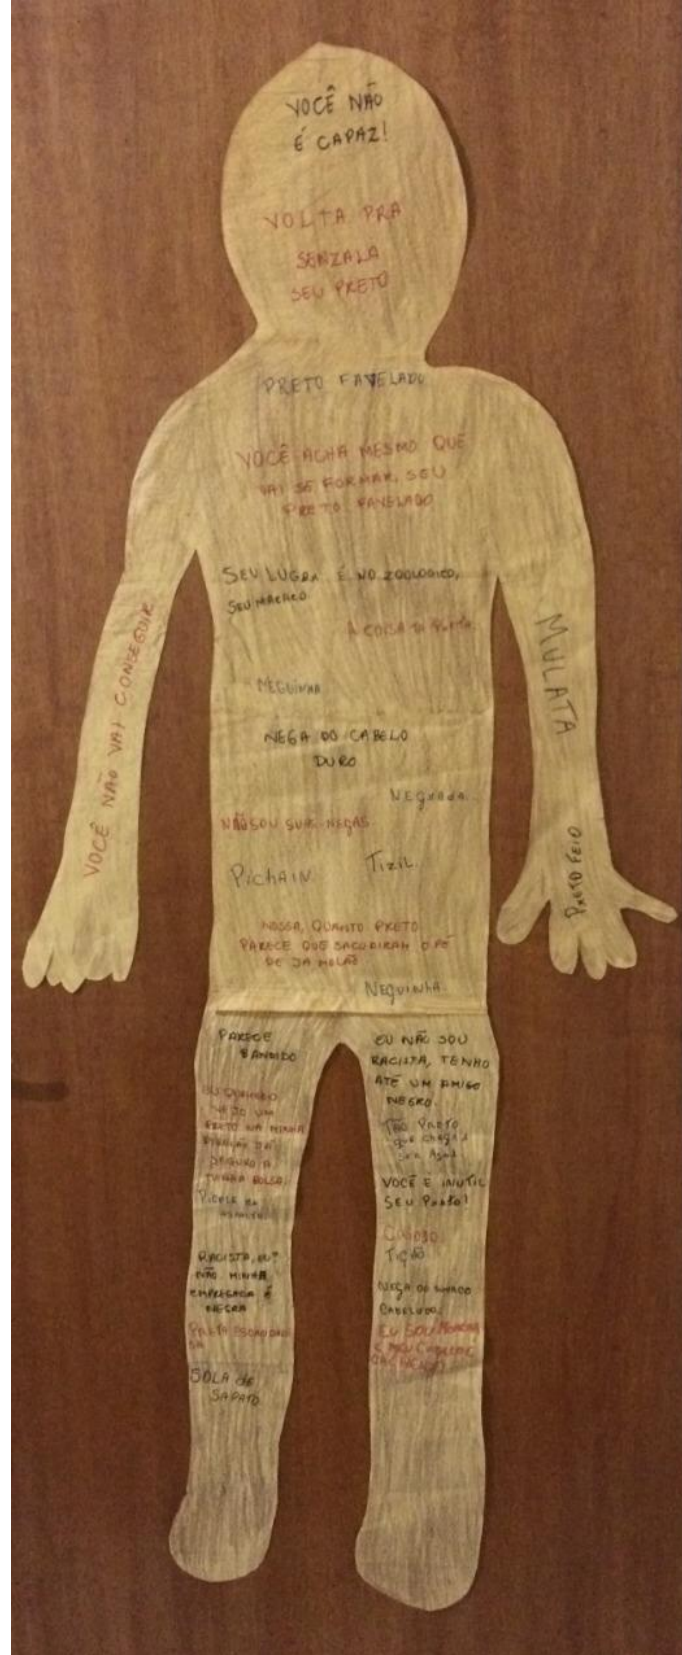 VOCÊ NÃO
É CAPAZ!
VOLTA PRA
SENZALA
SEU PRETO
PRETO FAVELADO
VOCÊ ACHA MESMO QUE
VAI SE FORMAR, SEU
PRETO FAVELADO
SEU LUGRA É NO ZOOLOGICO,
SEU MACACO
A COISA TA PRETA.
VOCÊ NÃO VAI CONSEGUIR
MULATA
NEGUINHA
NÊGA DO CABELO
DURO
NEGRADA.
NÃO SOU SUAS NEGAS
PICHAIN
TIZIL
PRETO FEIO
NOSSA, QUANTO PRETO
PARECE QUE SACUDIRAM O PÉ
DE JAMELÃO
NEGUINHA.
PARECE
BANDIDO
EU QUANDO
VEJO UM
PRETO NA MINHA
JÁ
SEGURO A
MINHA BOLSA.
RACISTA, EU?
NÃO MINHA
EMPREGADA É
NEGRA
SOLA DE
SAPATO
EU NÃO SOU
RACISTA, TENHO
ATÉ UM AMIGO
NEGRO.
TÃO PRETO
que chega a
ser Azul
VOCÊ É INUTIL
SEU PRETO!
TIÇÃO
NEGA DO
CABELUDO.
EU SOU MORENA
E MEU CABELO É
CACHEADO